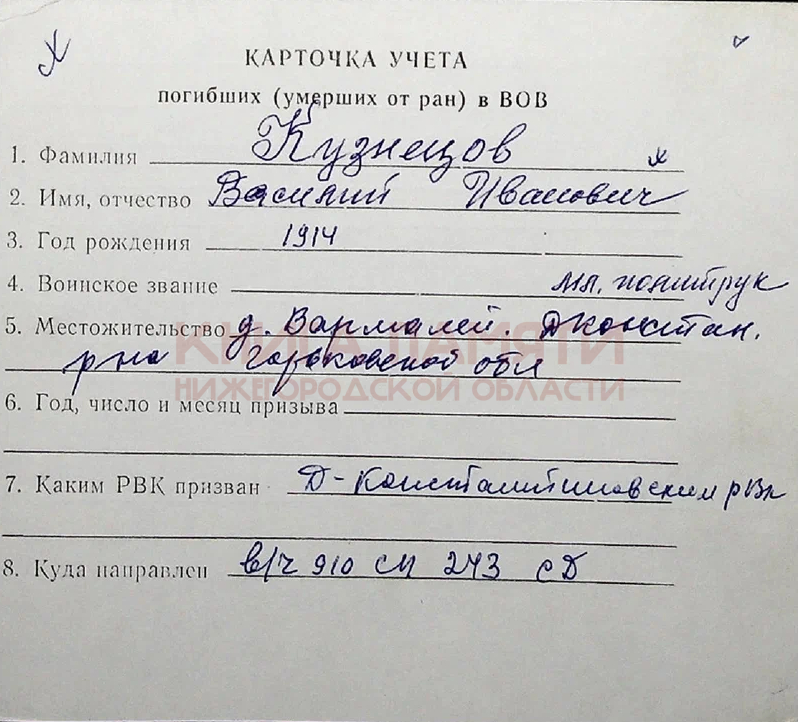 КАРТОЧКА УЧЕТА
погибших (умерших от ран) в ВОВ
1. Фамилия Кузнецов
2. Имя, отчество Василий Иванович
3. Год рождения 1914
4. Воинское звание мл. политрук
5. Местожительство д. Вармалей. Дконстан.
р-на Горьковской обл
6. Год, число и месяц призыва
7. Каким РВК призван Д-Константиновским рвк
8. Куда направлен в/ч 910 сп 243 сд
КНИГА ПАМЯТИ
НИЖЕГОРОДСКОЙ ОБЛАСТИ